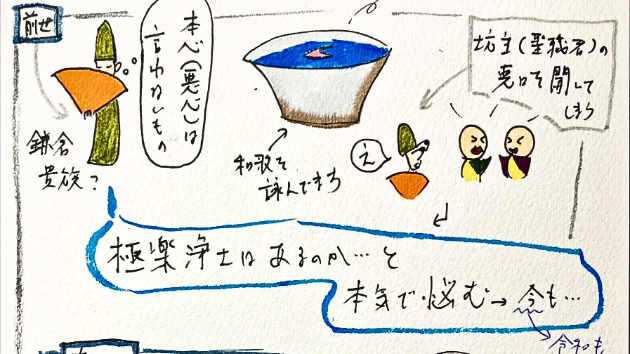 前世
本心(悪心)は
言わないもの
鎌倉
貴族?
和歌を
詠んできち
坊主(聖職者)の
悪口を聞いて
しまう
え
極楽浄土はあるのか…と
本気で悩む→今も…
令和も